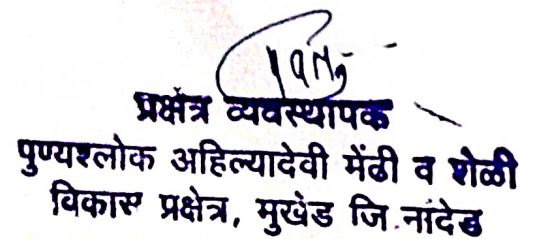 प्रक्षेत्र व्यवस्थापक
पुण्यश्लोक अहिल्यादेवी मेंढी व शेळी
विकास प्रक्षेत्र, मुखेड जि.नांदेड